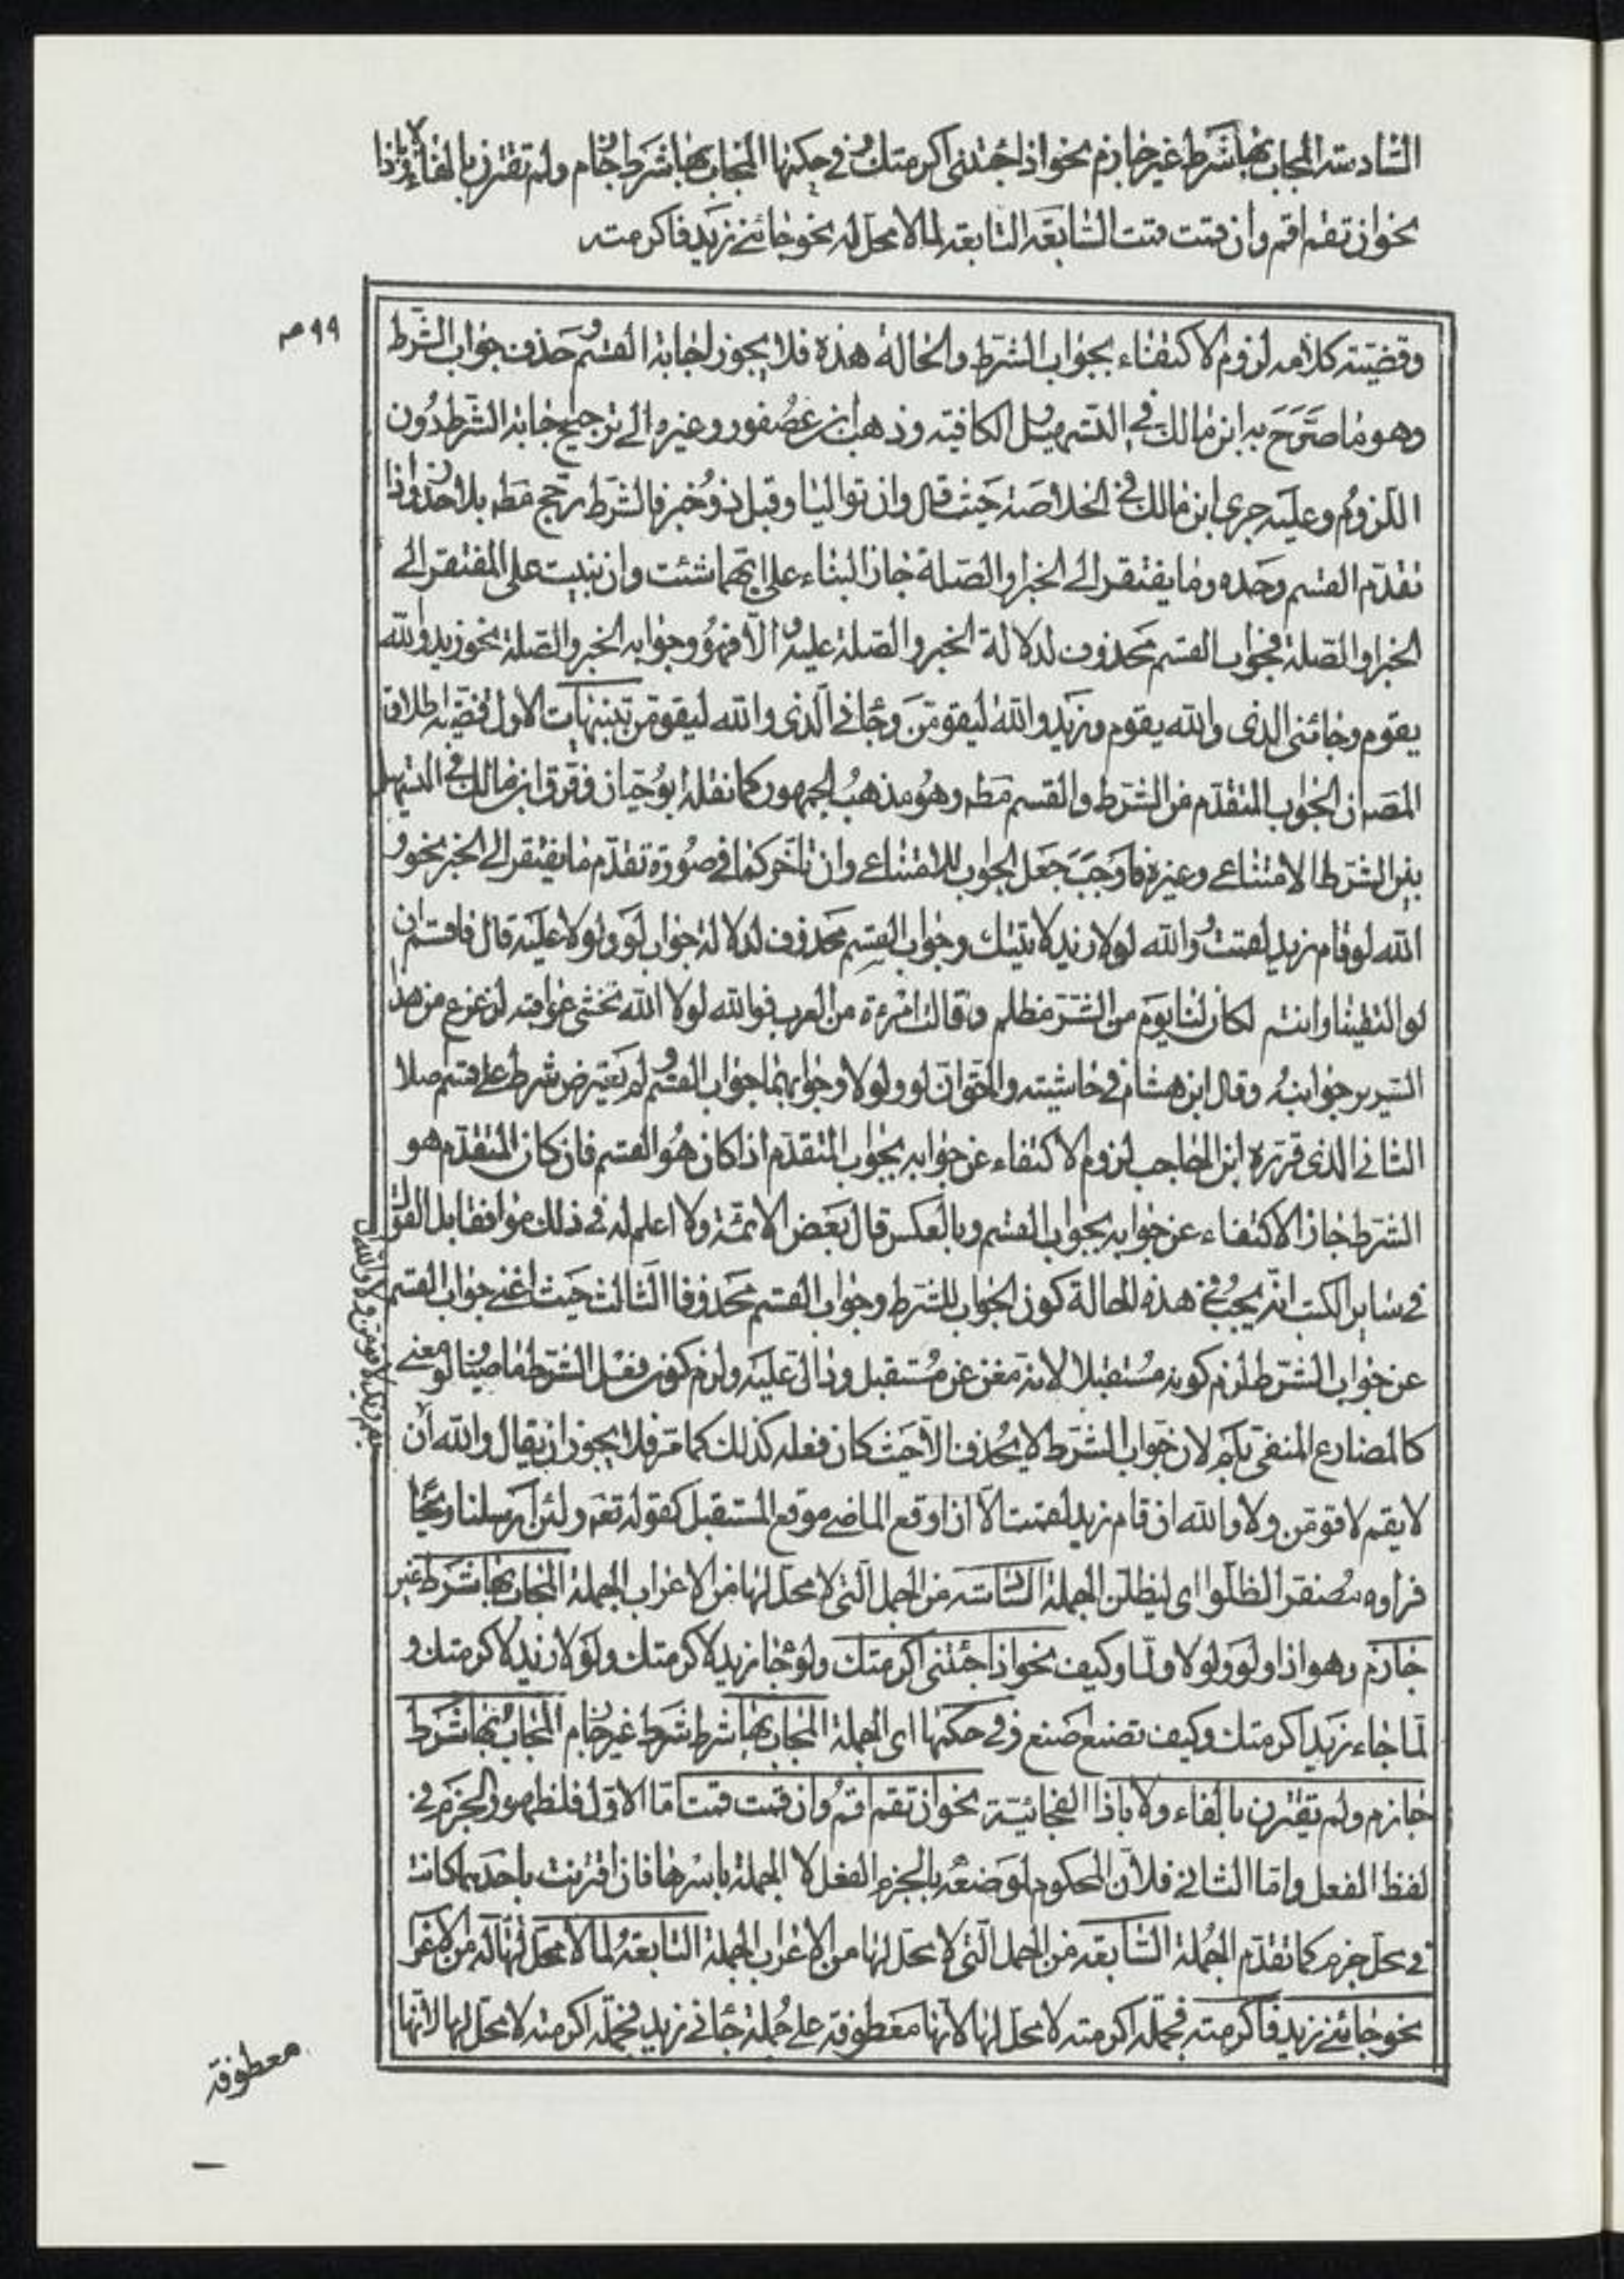 السادسة المجاب بها شرط غير جازم نحو اذا جئتنى اكرمتك وفي حكمها المجاب بها شرط جازم ولم تقترن بالفاء ولا باذا
نحو ان تقم اقم وان قمت قمت السابعة التابعة لما لا محل له نحو جائني زيد فاكرمته
٩٩ مر
وقضيته كلامه لزوم الاكتفاء بجواب الشرط والحالة هذه فلا يجوز اجابة القسم وحذف جواب الشرط
وهو ما صَرَّحَ به ابن مالك في التسهيل الكافية وذهب ابن عصفور وغيره الى ترجيح اجابة الشرط دُون
اللزوم وعليه جرى ابن مالك في الخلاصة حيث قال وان تواليا وقبل ذو خبر فالشرط رجح مطه بلا حذر واذا
تقدّم القسم وحده وما يفتقر الى الخبر او الصلة جاز البناء على ايّهما شئت وان بنيت على المفتقر الى
الخبر او الصّلة فجواب القسم محذوف لدلالة الخبر والصلة عليه والّا فهو وجوابه الخبر والصّلة نحو زيد والله
يقوم وجائنى الذى والله يقوم وزيد والله ليقومَنّ وجائني الّذى والله ليقومن تنبيهات الاول قضية اطلاق
المصَ ان الجواب للمتقدّم من الشرط والقسم مَطه وهو مذهبُ الجمهور كما نقله ابوُ حيّان وفرّق ابن مالك في التسهيل
بين الشرط الامتناعى وغيره فاَوجَبَ جَعَل الجواب للامتناعى وان تأخّر كما في صُورة تقدّم ما يفتقر الى الخبر نحو و
الله لو قام زيد لقمت والله لولا زيد لاتيتك وجواب القسم محذوف لدلالة جواب لو ولولا عليه قال فاقسم ان
لو التقينا وانتم لكان لنا يوم من الشرّ مظلم وقالت امرءة من العرب فوالله لولا الله تخشى عواقبه لزعزع من هذا
السرير جوانبهُ وقال ابن هشام في حاشيته والحق انّ لو ولولا وجوابهما جواب القسم ولم يعترض شرط على قسم اصلا
الثانى الذى قرّره ابن الحاجب لزوم الاكتفاء عن جوابه بجواب المتقدّم اذا كان هُو القسم فان كان المتقدّم هو
الشرط جاز الاكتفاء عن جوابه بجواب القسم وبالعكس قال بَعض الائمّة ولا اعلم له في ذلك موافقا بل المقرّر
في ساير الكتب انّه يجبُ في هذه الحالة كون الجواب للشرط وجواب القسم محذوفا الثالث حيث اغنى جواب القسم
عن جواب الشرط لزم كونه مُستقبلا لانه مغن عن مُستقبل ودالّ عليه ولزم كون فعل الشرط ماضيا ولو معنى
كالمضارع المنفى بلم لان جواب الشرط لا يُحذف الاّ حيث كان فعله كذلك كما مَرّ فلا يجوز ان يقال والله ان
لا يقم لاقومن ولا والله ان قام زيد لقمت الّا ان اوقع الماضى موقع المستقبل كقوله تعَه ولئن ارسلنا ريحًا
فراوه مُصفرّا لظلّوا اى ليظلن الجملة السّادسة من الجمل الّتى لا محل لها من الاعراب الجملة المجاب بها شَرط غير
جازم وهو اذا ولو ولولا ولمّا وكيف نحو اذا جئتنى اكرمتك ولو جاء زيد لاكرمتك ولولا زيد لاكرمتك و
لمّا جاء زيد اكرمتك وكيف تصنع اصنع وفي حكمها اى الجملة المجاب بها شرط شرط غير جازم المجاب بها شَرط
جازم ولم تقترن بالفاء ولا باذا الفجائيّة نحو ان تقم اقم وان قمت قمت امّا الاوّل فلظهور الجزم في
لفظ الفعل وامّا الثانى فلأن المحكوم لموضعه بالجزم الفعل لا الجملة باسرها فان اقترنت باحدهما كانت
في محلّ جزم كما تقدّم الجُملة السّابعة من الجمل الّتى لا محل لها من الاعراب الجملة التابعةُ لما لا محلّ لها له من الاعرا
نحو جائني زيد فاكرمته فجملة اكرمته لا محل لها لانها معطوفة على جُملة جائني زيد فجملة اكرمته لا محل لها لانّها
معطوفة